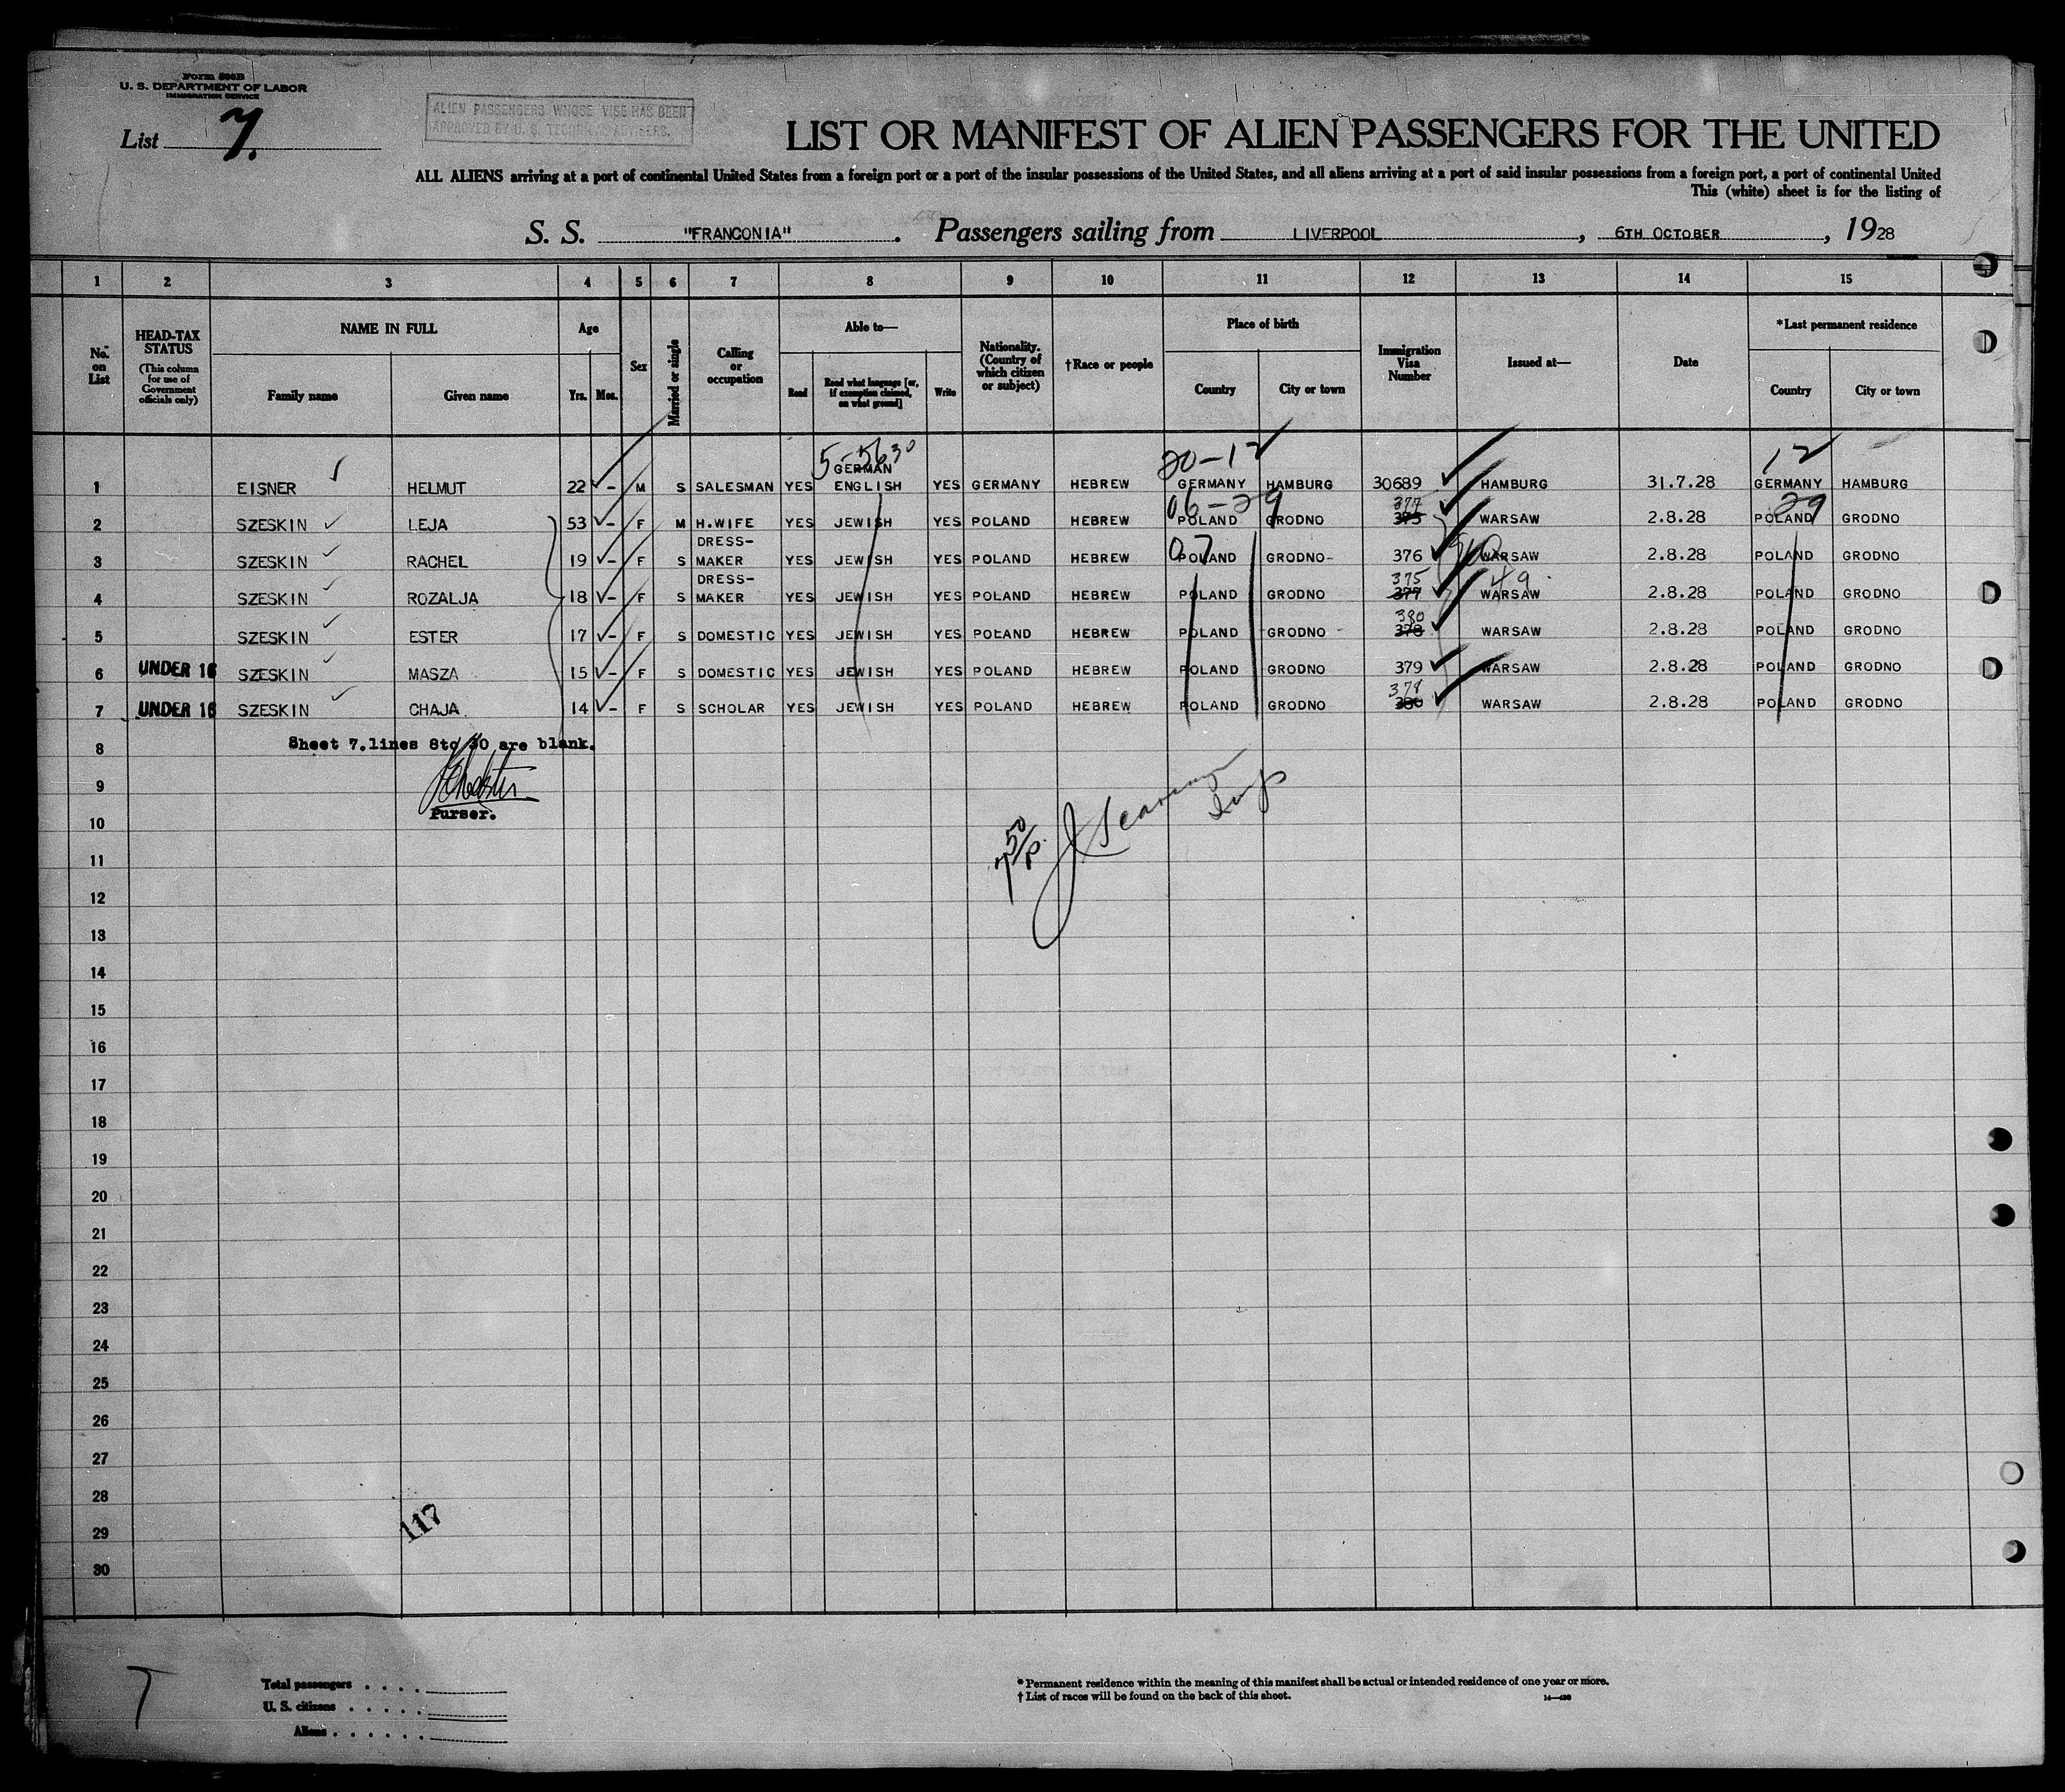 Form 500B
U. S. DEPARTMENT OF LABOR
IMMIGRATION SERVICE
List 7.
ALIEN PASSENGERS WHOSE VISE HAS BEEN
APPROVED BY U. S. TECHNICAL ADVISERS.
LIST OR MANIFEST OF ALIEN PASSENGERS FOR THE UNITED
ALL ALIENS arriving at a port of continental United States from a foreign port or a port of the insular possessions of the United States, and all aliens arriving at a port of said insular possessions from a foreign port, a port of continental United
This (white) sheet is for the listing of
S. S. "FRANCONIA" . Passengers sailing from LIVERPOOL , 6TH OCTOBER , 1928
1 2 3 4 5 6 7 8 9 10 11 12 13 14 15
No. on List
HEAD-TAX STATUS
(This column for use of Government officials only)
NAME IN FULL
Family name Given name
Age
Yrs. Mos.
Sex
Married or single
Calling or occupation
Able to—
Read
Read what language [or, if exemption claimed, on what ground]
Write
Nationality. (Country of which citizen or subject)
†Race or people
Place of birth
Country City or town
Immigration Visa Number
Issued at—
Date
*Last permanent residence
Country City or town
5-5630 20-12 12
GERMAN
1 EISNER HELMUT 22 - M S SALESMAN YES ENGLISH YES GERMANY HEBREW GERMANY HAMBURG 30689 HAMBURG 31.7.28 GERMANY HAMBURG
06-29 377 29
2 SZESKIN LEJA 53 - F M H.WIFE YES JEWISH YES POLAND HEBREW POLAND GRODNO 375 WARSAW 2.8.28 POLAND GRODNO
DRESS-
07
3 SZESKIN RACHEL 19 - F S MAKER YES JEWISH YES POLAND HEBREW POLAND GRODNO- 376 WARSAW 2.8.28 POLAND GRODNO
DRESS- 375 49
4 SZESKIN ROZALJA 18 - F S MAKER YES JEWISH YES POLAND HEBREW POLAND GRODNO 377 WARSAW 2.8.28 POLAND GRODNO
380
5 SZESKIN ESTER 17 - F S DOMESTIC YES JEWISH YES POLAND HEBREW POLAND GRODNO - 378 WARSAW 2.8.28 POLAND GRODNO
6 UNDER 16 SZESKIN MASZA 15 - F S DOMESTIC YES JEWISH YES POLAND HEBREW POLAND GRODNO 379 WARSAW 2.8.28 POLAND GRODNO
378
7 UNDER 16 SZESKIN CHAJA 14 - F S SCHOLAR YES JEWISH YES POLAND HEBREW POLAND GRODNO 380 WARSAW 2.8.28 POLAND GRODNO
8 Sheet 7.lines 8to 30 are blank.
9
Purser.
10
11
12
13
14
15
16
17
18
19
20
21
22
23
24
25
26
27
28
117
29
30
Total passengers . . . .
U. S. citizens . . . . .
Aliens . . . . . .
* Permanent residence within the meaning of this manifest shall be actual or intended residence of one year or more.
† List of races will be found on the back of this sheet.